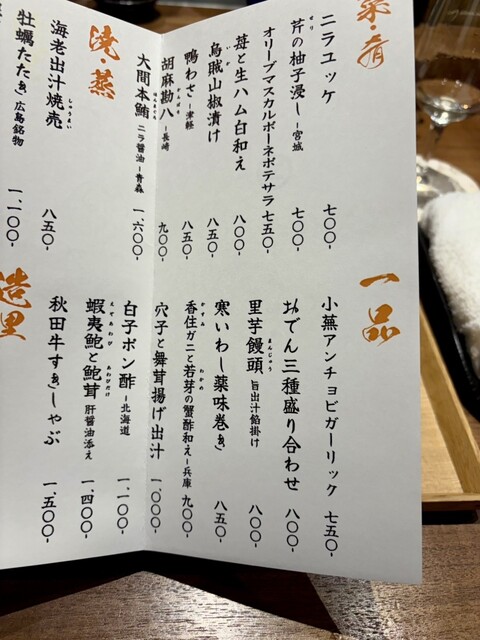 菜・肴
ニラユッケ 七〇〇-
芹の柚子浸し-宮城 七〇〇-
せり
オリーブマスカルポーネポテサラ 七五〇-
苺と生ハム白和え 八〇〇-
烏賊山椒漬け 八五〇-
いか
鴨わさ-津軽 八五〇-
胡麻勘八-長崎 九〇〇-
大間本鮪 ニラ醤油-青森 一、六〇〇-
焼・蒸
海老出汁焼売 八五〇-
しゅうまい
牡蠣たたき 広島名物 一、一〇〇-
一品
小蕪アンチョビガーリック 七五〇-
おでん三種盛り合わせ 八〇〇-
里芋饅頭 旨出汁餡掛け 八〇〇-
まんじゅう
寒いわし薬味巻き 八五〇-
香住ガニと若芽の蟹酢和え-兵庫 九〇〇-
かすみ
わかめ
穴子と舞茸揚げ出汁 一、〇〇〇-
白子ポン酢-北海道 一、一〇〇-
蝦夷鮑と鮑茸 肝醤油添え 一、四〇〇-
えぞあわび
あわびだけ
秋田牛すきしゃぶ 一、五〇〇-
造里